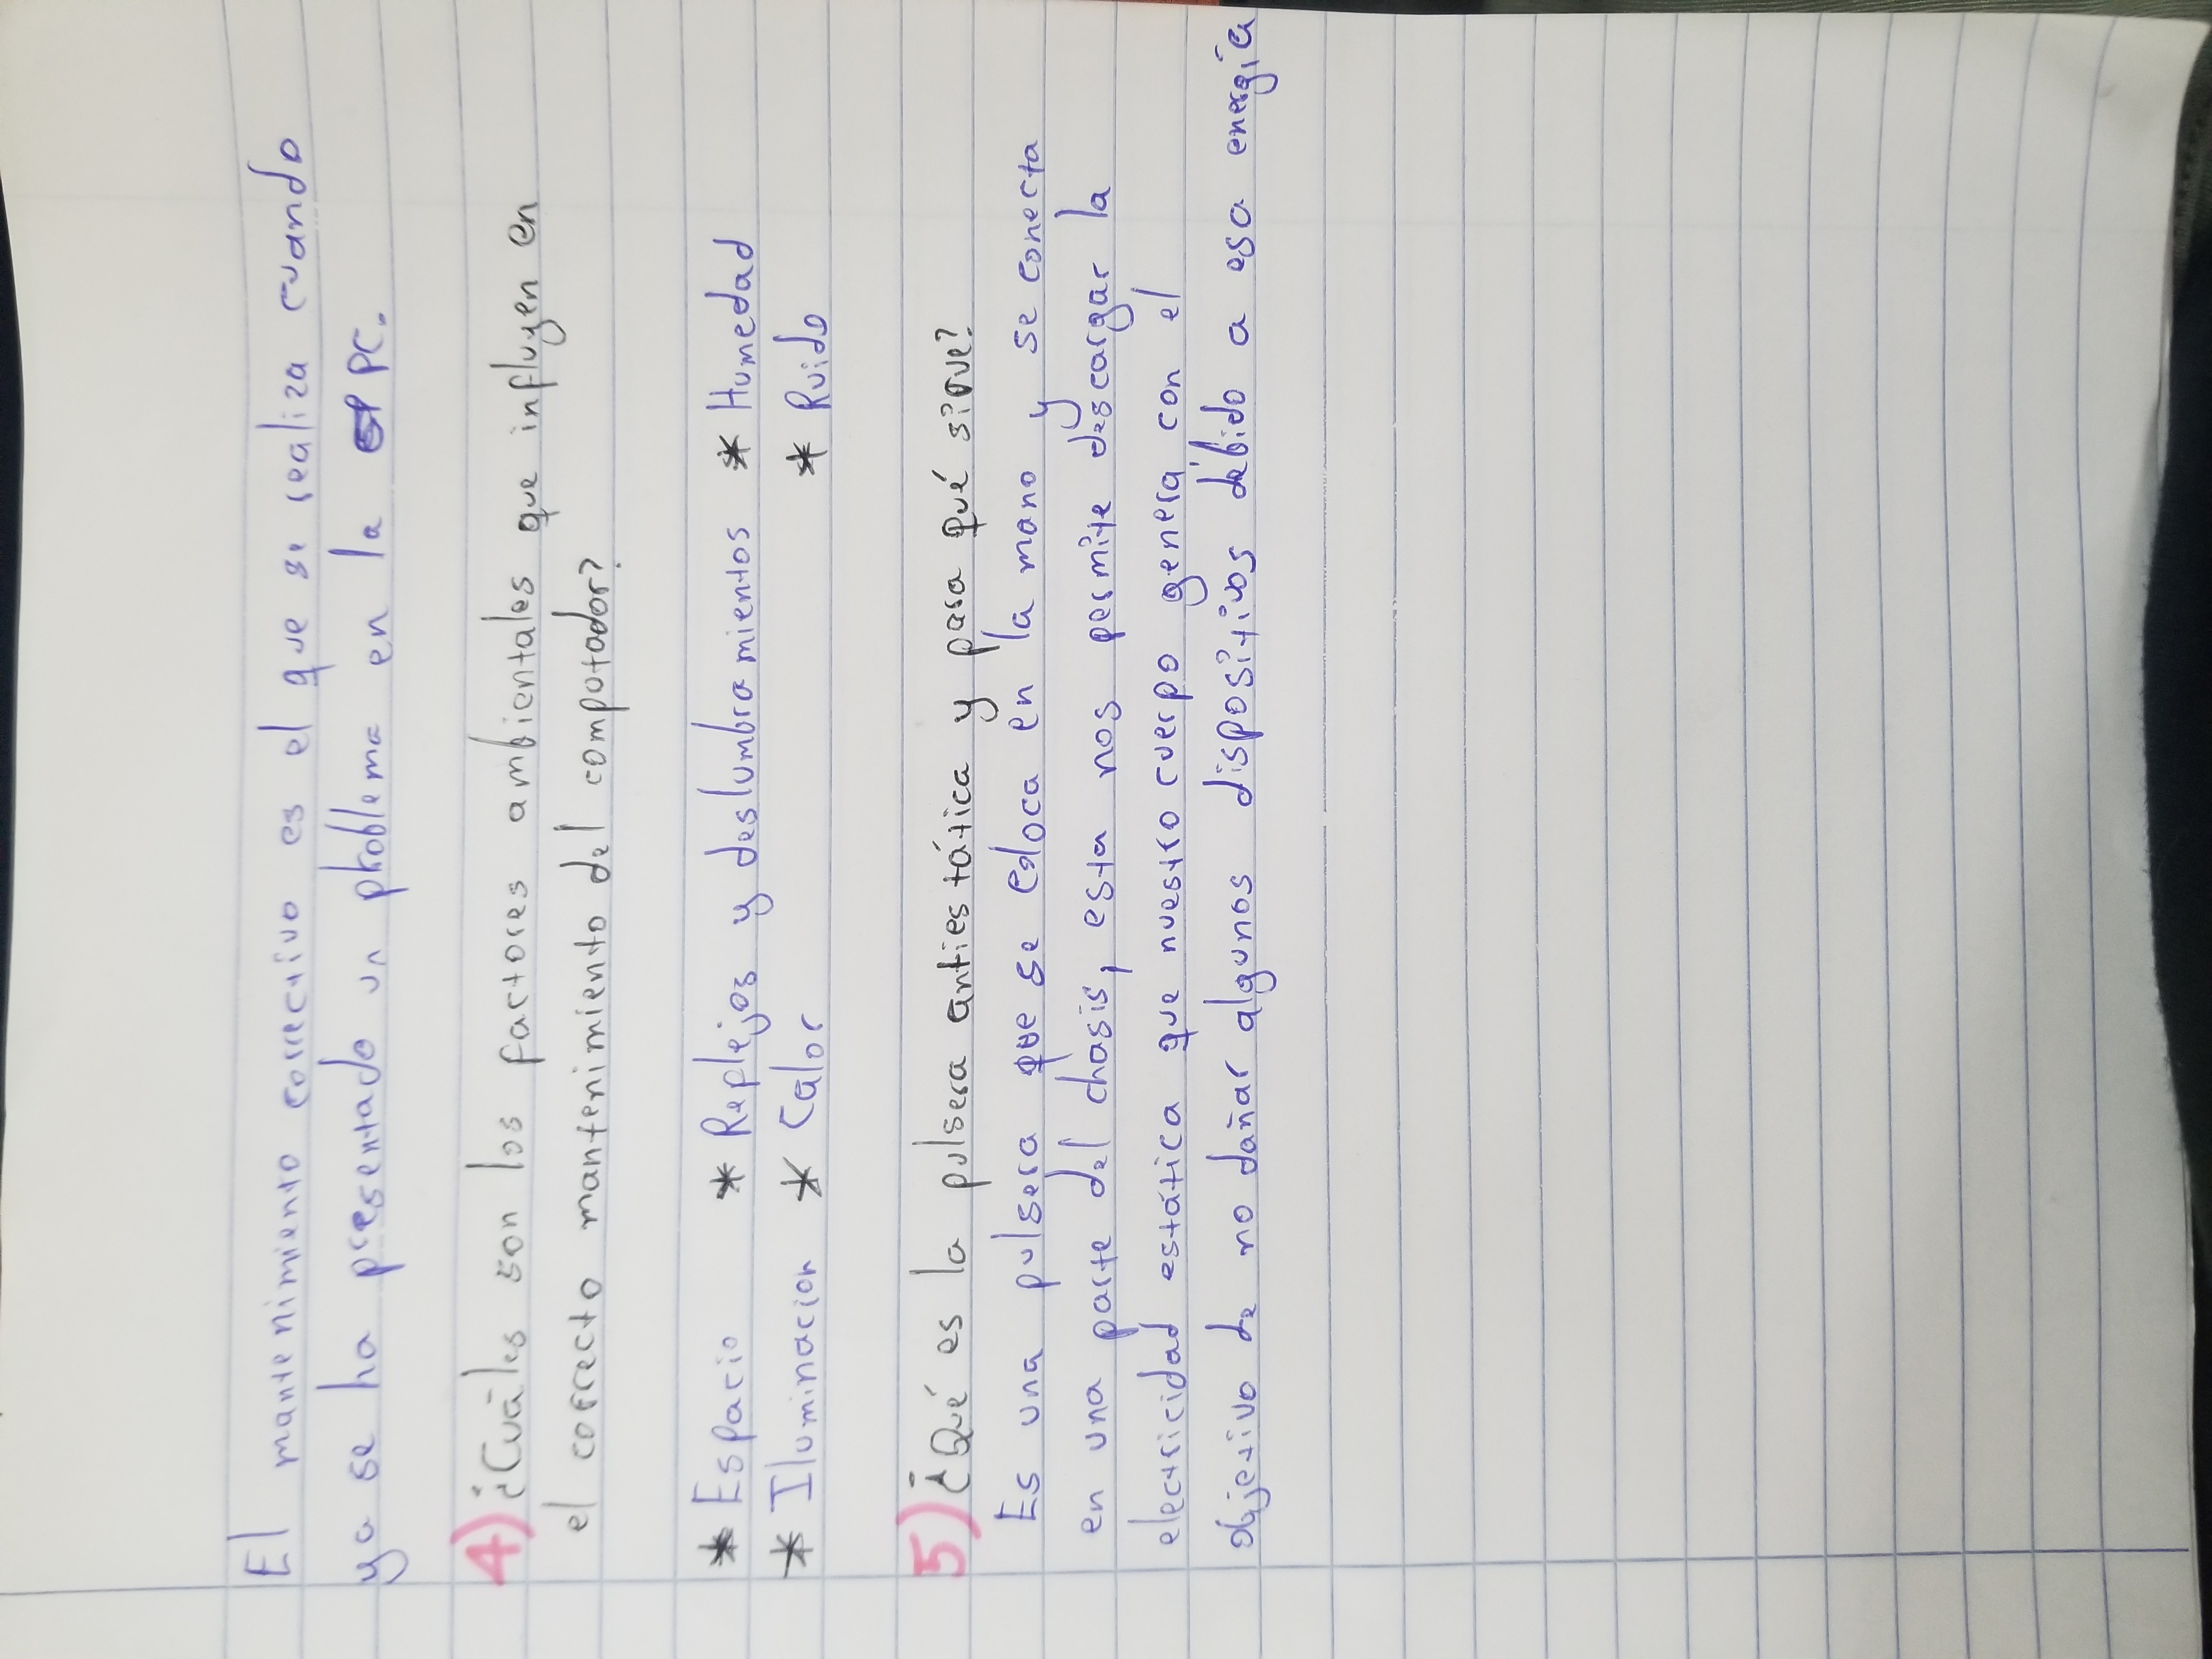 El mantenimiento correctivo es el que se realiza cuando
ya se ha presentado un problema en la PC.
4) ¿Cuáles son los factores ambientales que influyen en
el correcto mantenimiento del computador?
* Espacio * Reflejos y deslumbramientos * Humedad
* Iluminacion * Calor * Ruido
5) ¿Qué es la pulsera antiestática y para qué sirve?
Es una pulsera que se coloca en la mano y se conecta
en una parte del chasis, esta nos permite descargar la
electricidad estática que nuestro cuerpo genera, con el
objetivo de no dañar algunos dispositivos debido a esa energía